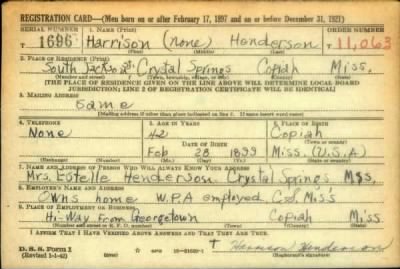 REGISTRATION CARD—(Men born on or after February 17, 1897 and on or before December 31, 1921)
SERIAL NUMBER 1. NAME (Print) ORDER NUMBER
1696 Harrison (none) Henderson T 11,063
(First) (Middle) (Last)
2. PLACE OF RESIDENCE (Print)
South Jackson St. Crystal Springs Copiah Miss.
(Number and street) (Town, township, village, or city) (County) (State)
[THE PLACE OF RESIDENCE GIVEN ON THE LINE ABOVE WILL DETERMINE LOCAL BOARD
JURISDICTION; LINE 2 OF REGISTRATION CERTIFICATE WILL BE IDENTICAL]
3. MAILING ADDRESS
Same
(Mailing address if other than place indicated on line 2. If same insert word same)
4. TELEPHONE 5. AGE IN YEARS 6. PLACE OF BIRTH
None 42 Copiah
DATE OF BIRTH (Town or county)
Feb 28 1899 Miss. (U.S.A)
(Exchange) (Number) (Mo.) (Day) (Yr.) (State or country)
7. NAME AND ADDRESS OF PERSON WHO WILL ALWAYS KNOW YOUR ADDRESS
Mrs. Estelle Henderson Crystal Springs Miss.
8. EMPLOYER'S NAME AND ADDRESS
Owns home W.P.A employed C.S. Miss
9. PLACE OF EMPLOYMENT OR BUSINESS
Hi-Way from Georgetown Copiah Miss.
(Number and street or R. F. D. number) (Town) (County) (State)
I AFFIRM THAT I HAVE VERIFIED ABOVE ANSWERS AND THAT THEY ARE TRUE.
D. S. S. Form 1
(Revised 1-1-42) (over) Harrison Henderson
(Registrant's signature)